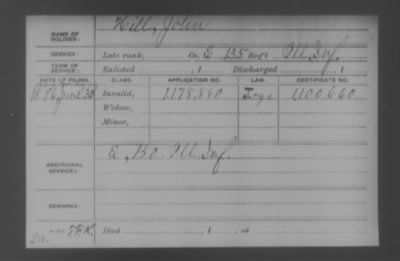 NAME OF SOLDIER: Hill, John
SERVICE: Late rank, Co. E, 135 Reg't Ill Inf.
TERM OF SERVICE: Enlisted , 1 Discharged , 1
DATE OF FILING. CLASS. APPLICATION NO. LAW. CERTIFICATE NO.
Invalid, 1178,880 1100,660
Widow,
Minor,
ADDITIONAL SERVICE: E, Ill Inf.
REMARKS:
Died , 1 , at